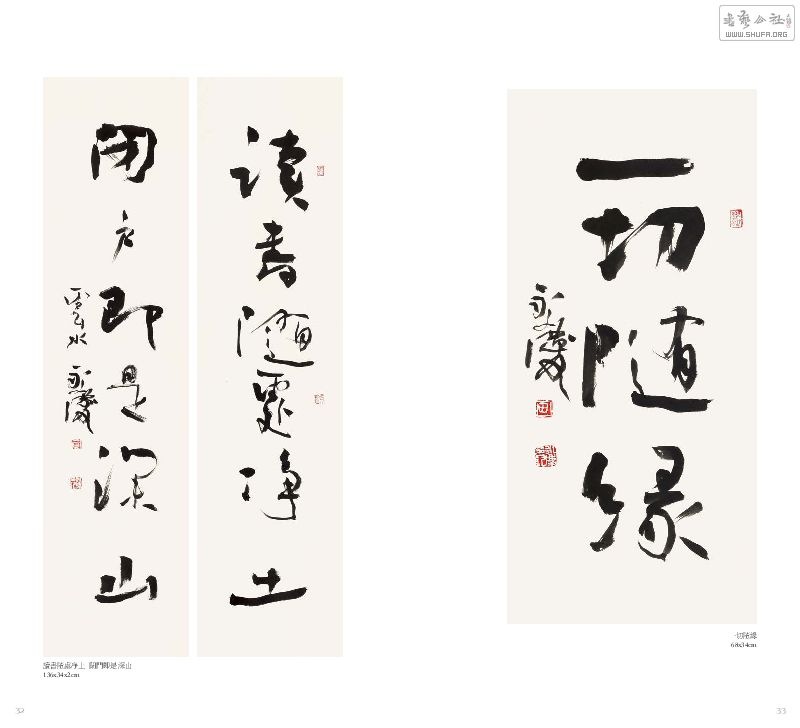 書藝公社
WWW.SHUFA.ORG
讀書隨處淨土
閉户即是深山
雲水
永濤
一切随緣
讀書随處净土 閉門即是深山
136x34x2cm
一切随緣
68x34cm
32
33